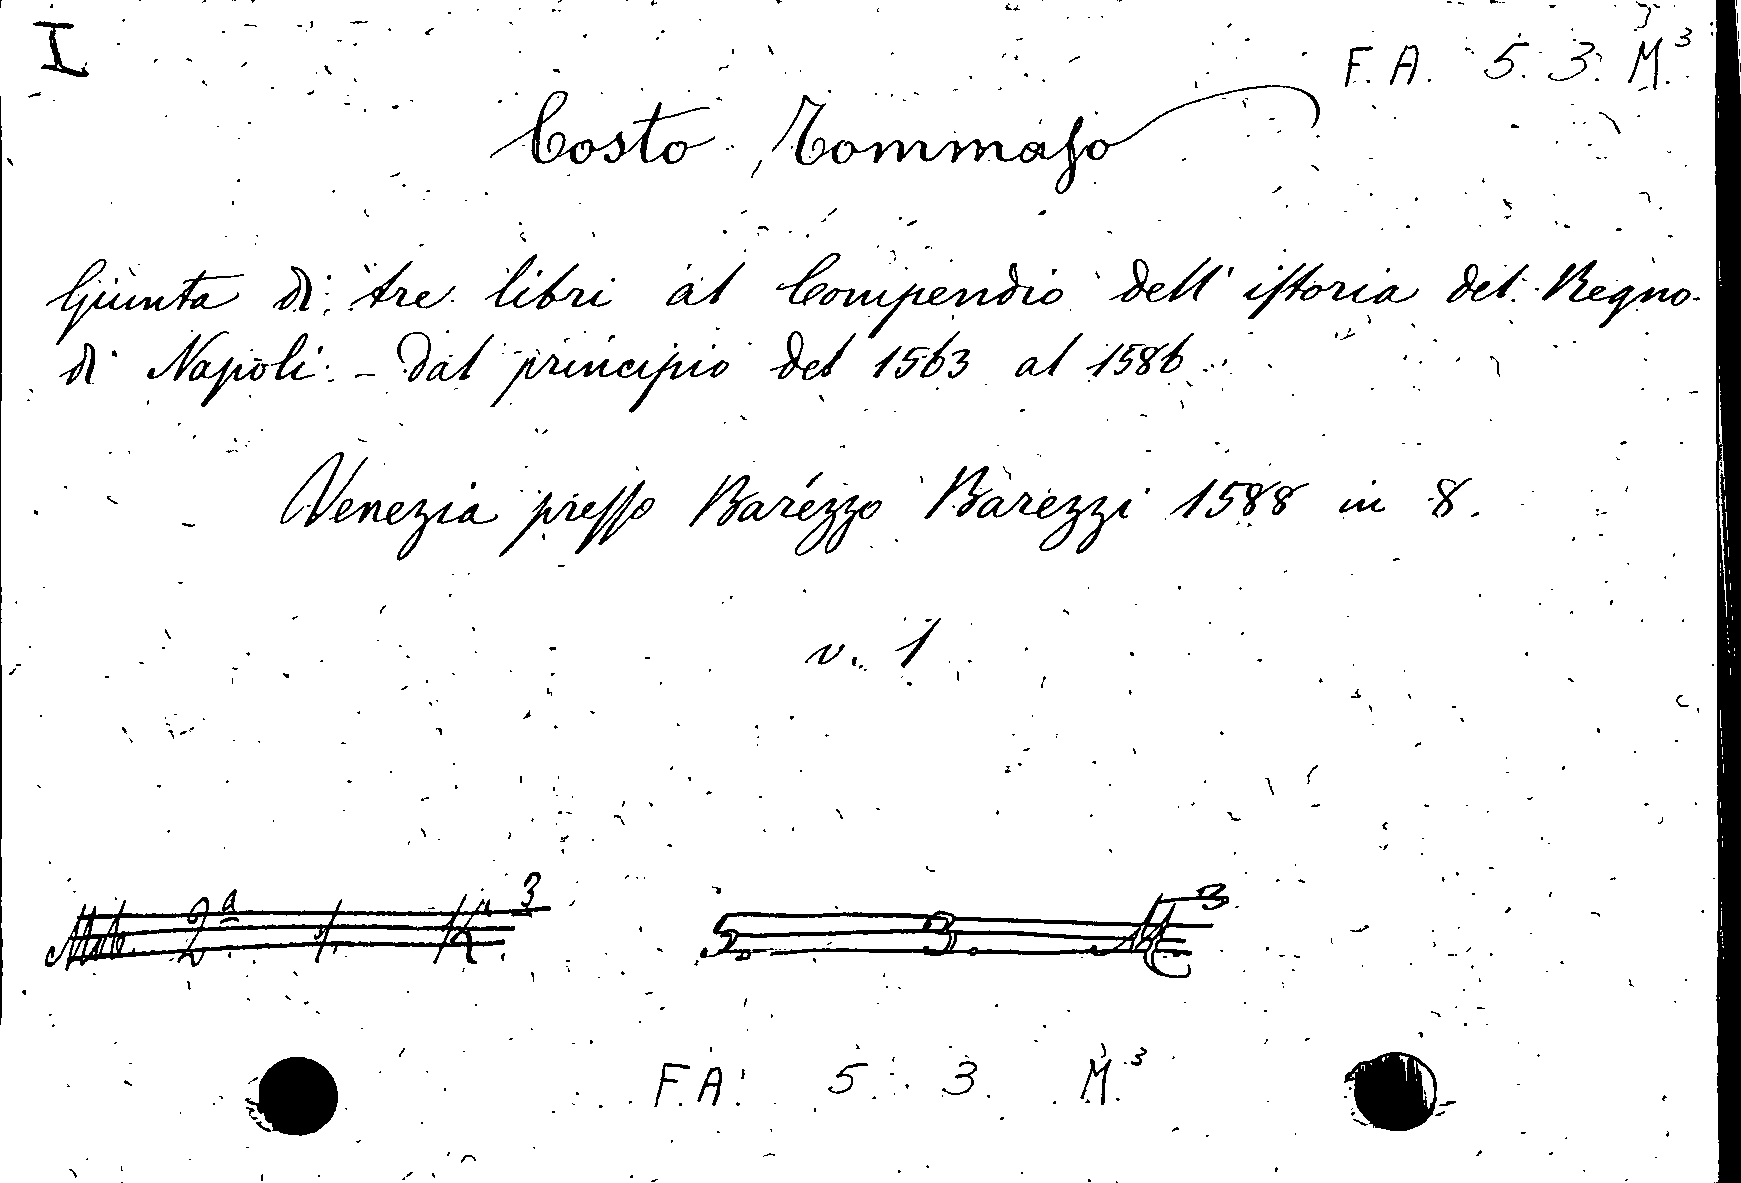 I
F. A. 5. 3. M.³
Costo Tommaso
Giunta di tre libri al Compendio dell' istoria del Regno
di Napoli. - Dal principio del 1563 al 1586
Venezia presso Barezzo Barezzi 1588 in 8.
v. 1
2ª 1. K. 3 5. 3. M 3
F. A. 5. 3. M.³